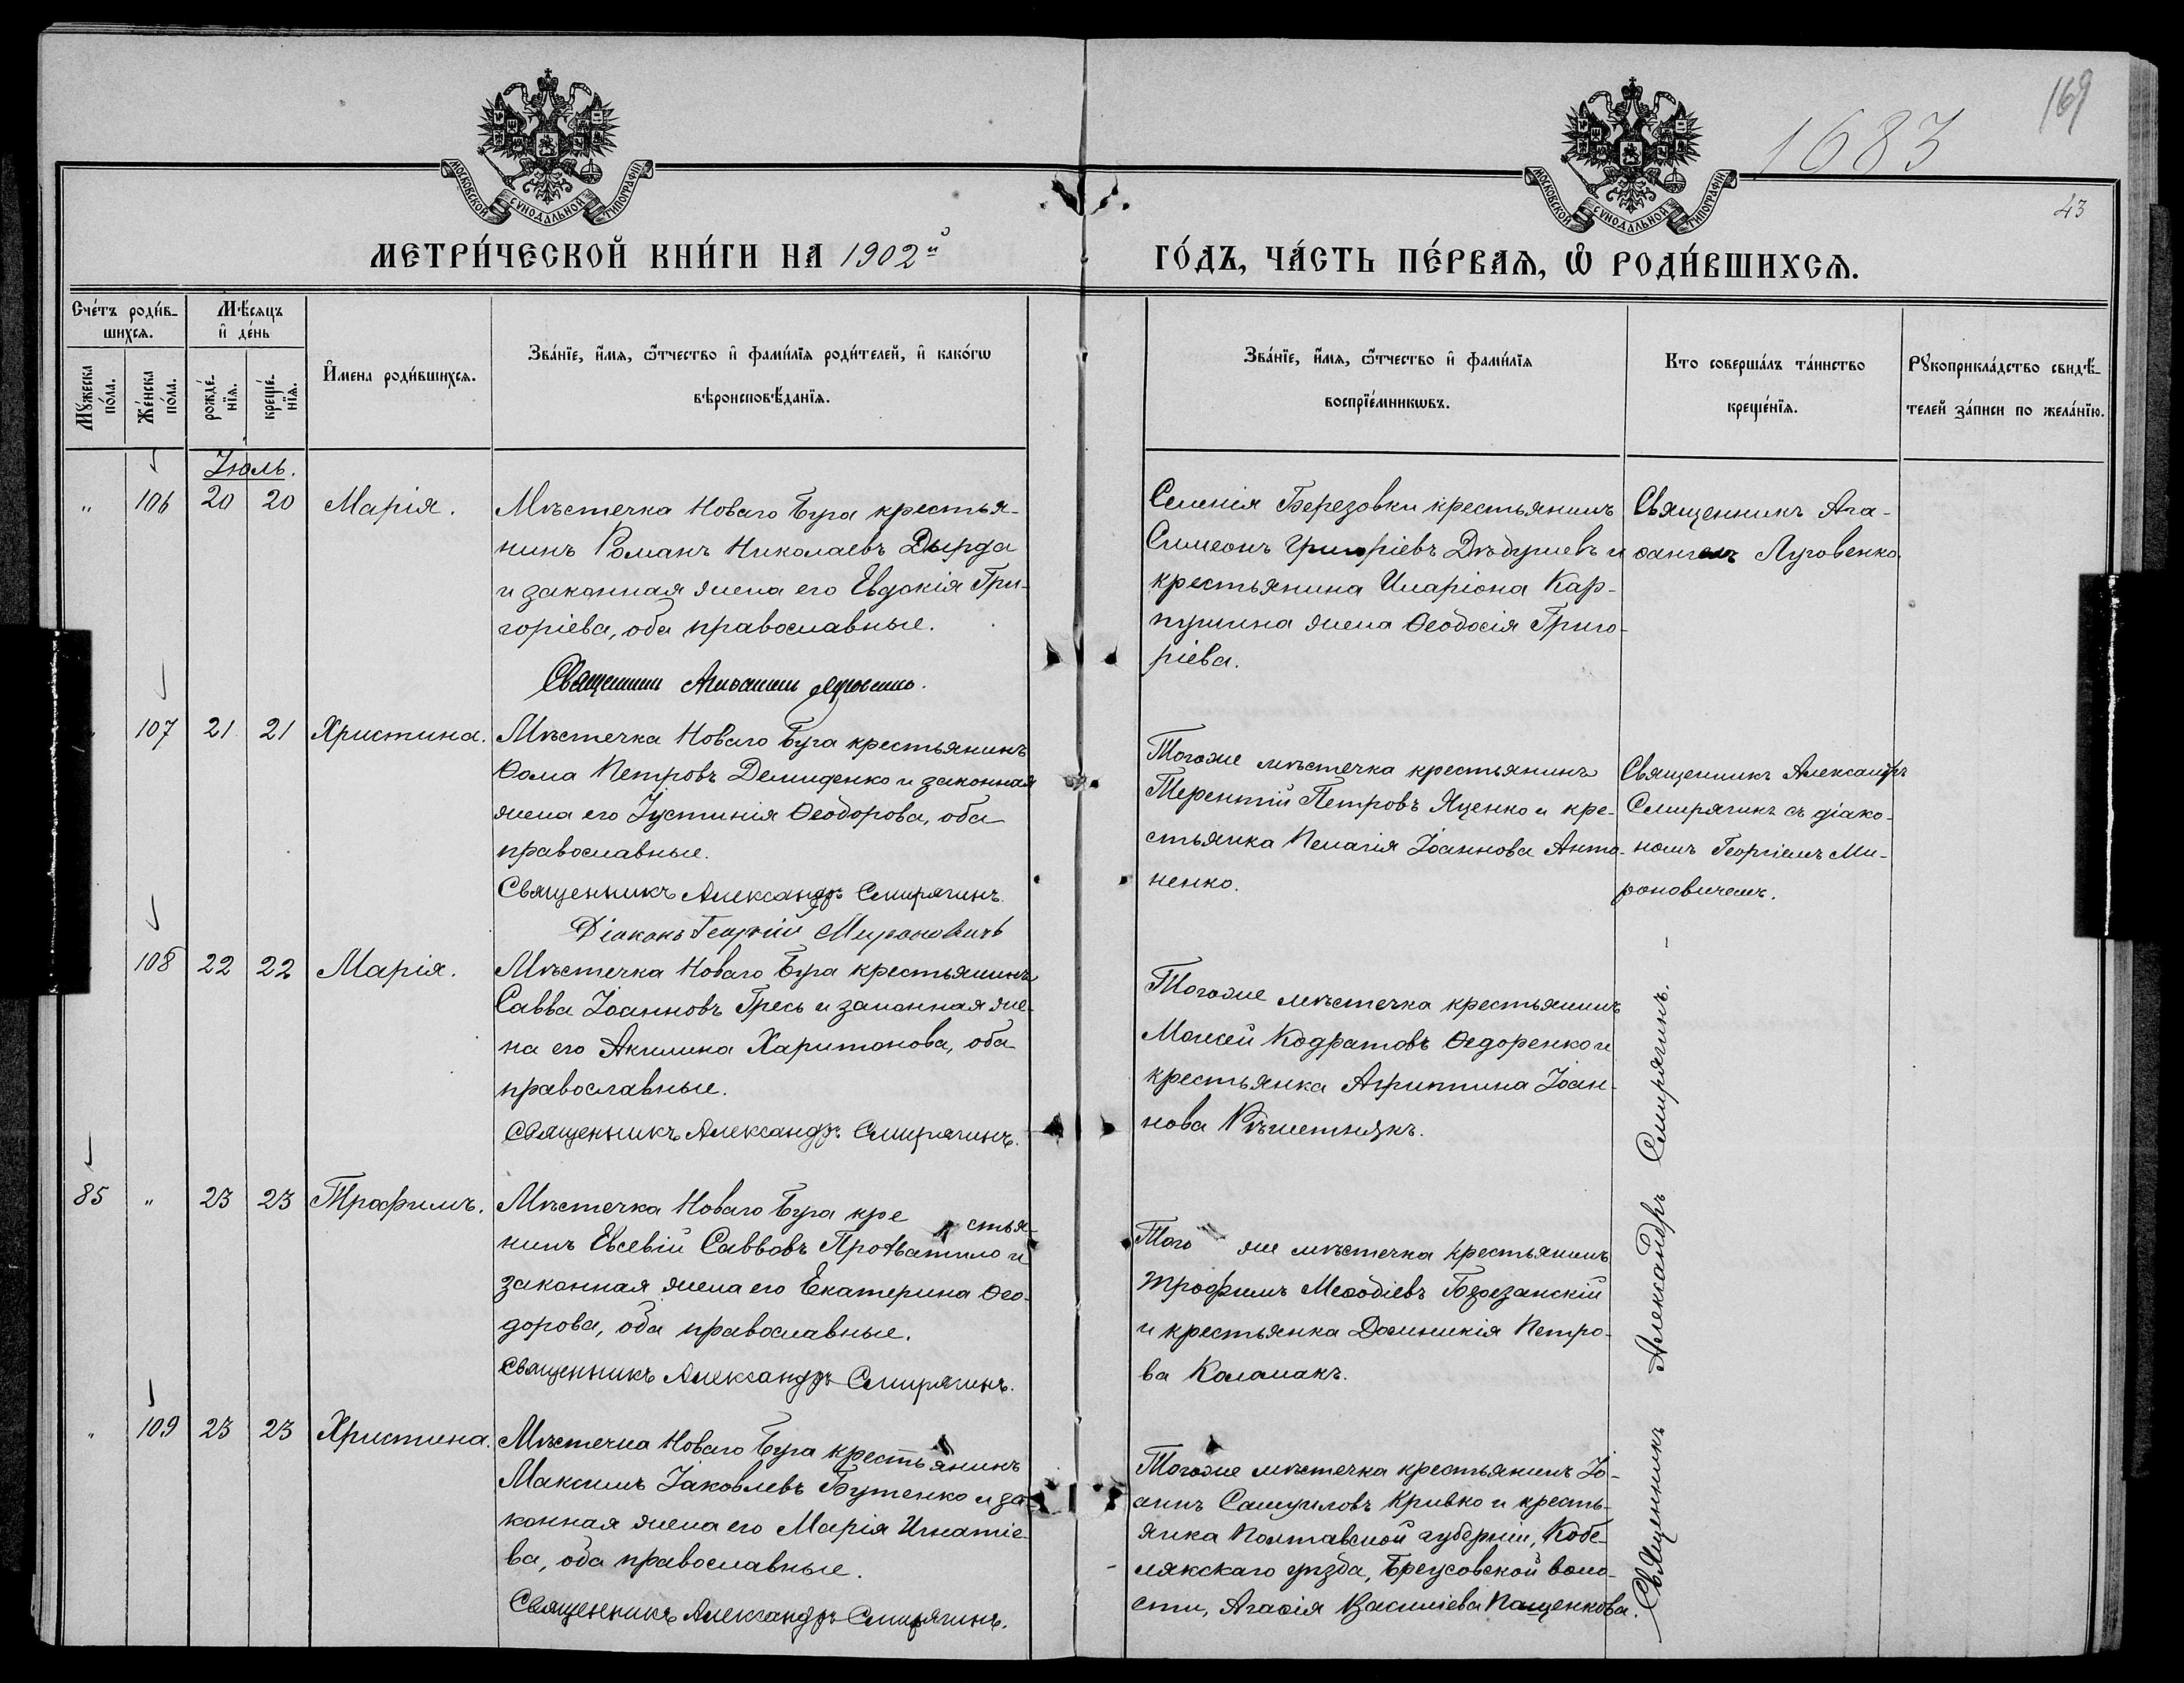 169
1683
43
МОСКОВСКОЙ СѴНОДАЛЬНОЙ ТИПОГРАФІИ
МОСКОВСКОЙ СѴНОДАЛЬНОЙ ТИПОГРАФІИ
МЕТРИ́ЧЕСКОЙ КНИ́ГИ НА 1902й
ГО́ДЪ, ЧА́СТЬ ПЕ́РВАѦ, Ѡ҆ РОДИ́ВШИХСѦ.
Сче́тъ роди́в-
шихсѧ.
Мꙋ́жеска по́ла.
Же́нска по́ла.
Мѣ́сѧцъ
и҆ де́нь
рожде́-нїѧ.
креще́-нїѧ.
И҆мена роди́вшихсѧ.
Зва́нїе, и҆́мѧ, ѻ҆́тчество и҆ фами́лїѧ роди́телей, и҆ како́гѡ
вѣроисповѣ́данїѧ.
Зва́нїе, и҆́мѧ, ѻ҆́тчество и҆ фами́лїѧ
воспрїе́мникѡвъ.
Кто соверша́лъ та́инство
креще́нїѧ.
Рꙋкоприкла́дство свидѣ́-
телей за́писи по жела́нїю.
Іюль.
" 106 20 20 Марія.
Мѣстечка Новаго Буга крестья-
нинъ Романъ Николаевъ Дырда
и законная жена его Евдокія Гри-
горіева, оба православные.
Селенія Березовки крестьянинъ
Симеонъ Григоріевъ и
крестьянина Иларіона Кар-
пушина жена Ѳеодосія Григо-
ріева.
Священникъ Ага-
ѳангелъ Луговенко
Священникъ Агаѳангелъ Луговенко.
107 21 21 Христина.
Мѣстечка Новаго Буга крестьянинъ
Ѳома Петровъ Демиденко и законная
жена его Іустинія Ѳеодорова, оба
православные.
Священникъ Александръ Смирягинъ.
Діаконъ Георгій Мироновичъ
Тогоже мѣстечка крестьянинъ
Терентій Петровъ Яценко и кре-
стьянка Пелагія Іоаннова Анто-
ненко.
Священникъ Александръ
Смирягинъ съ діако-
номъ Георгіемъ Ми-
роновичемъ.
108 22 22 Марія.
Мѣстечка Новаго Буга крестьянинъ
Савва Іоанновъ Гресь и законная же-
на его Акилина Харитонова, оба
православные.
Священникъ Александръ Смирягинъ.
Тогоже мѣстечка крестьянинъ
Моисей Кодратовъ Ѳедоренко и
крестьянка Агриппина Іоан-
нова Рѣшетнякъ.
85 " 23 23 Трофимъ.
Мѣстечка Новаго Буга кре стья-
нинъ Евсевій Саввовъ и
законная жена его Екатерина Ѳео-
дорова, оба православные.
Священникъ Александръ Смирягинъ.
Того же мѣстечка крестьянинъ
Трофимъ Меѳодіевъ Березанскій
и крестьянка Домникія Петро-
ва Коломакъ.
" 109 23 23 Христина.
Мѣстечка Новаго Буга крестьянинъ
Максимъ Іаковлевъ Бутенко и за-
конная жена его Марія Игнатіе-
ва, оба православные.
Священникъ Александръ Смирягинъ.
Тогоже мѣстечка крестьянинъ Іо-
аннъ Самуиловъ Кривко и кресть-
янка Полтавской губерніи, Кобе-
лякскаго уѣзда, Бреусовской воло-
сти, Агаѳія Василіева Пащенкова.
Священникъ Александръ Смирягинъ.